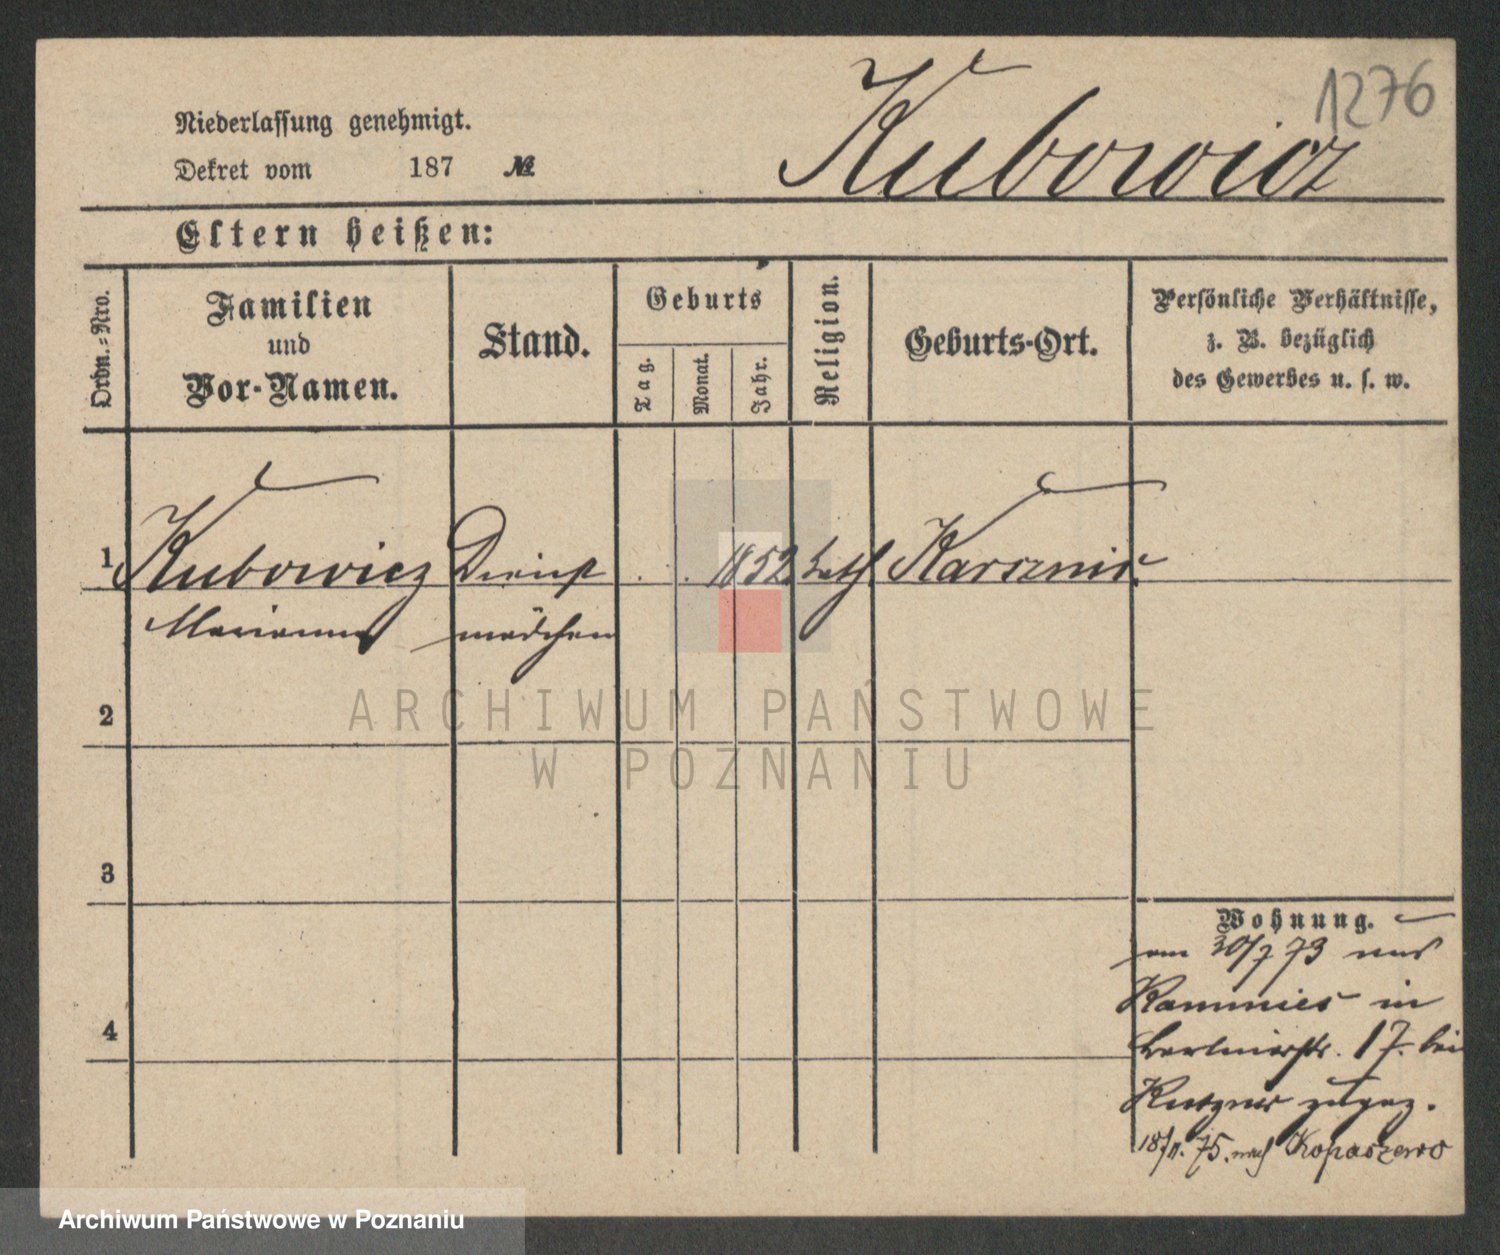 1276
Kubowicz
Niederlassung genehmigt.
Dekret vom 187 №
Eltern heißen:
Ordn.-Nro.
Familien
und
Vor-Namen.
Stand.
Geburts
Tag.
Monat.
Jahr.
Religion.
Geburts-Ort.
Persönliche Verhältnisse,
z. B. bezüglich
des Gewerbes u. s. w.
1 Kubowicz Dienst . . 1852 kath
Marianna mädchen
2
3
4
Wohnung.
am 30/7 73 aus
in
17. bei
zugez.
18/11. 75. nach Kopaszewo
ARCHIWUM PAŃSTWOWE
W POZNANIU
Archiwum Państwowe w Poznaniu